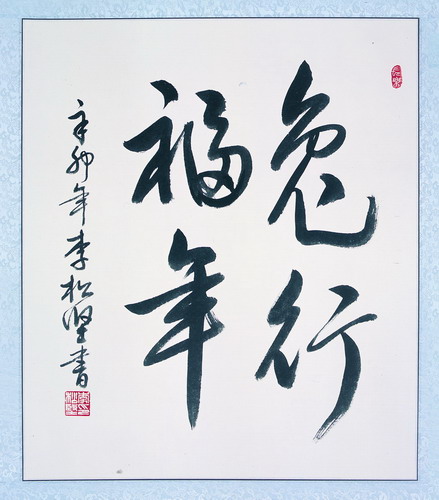 兔行
福年
辛卯年李松坚书